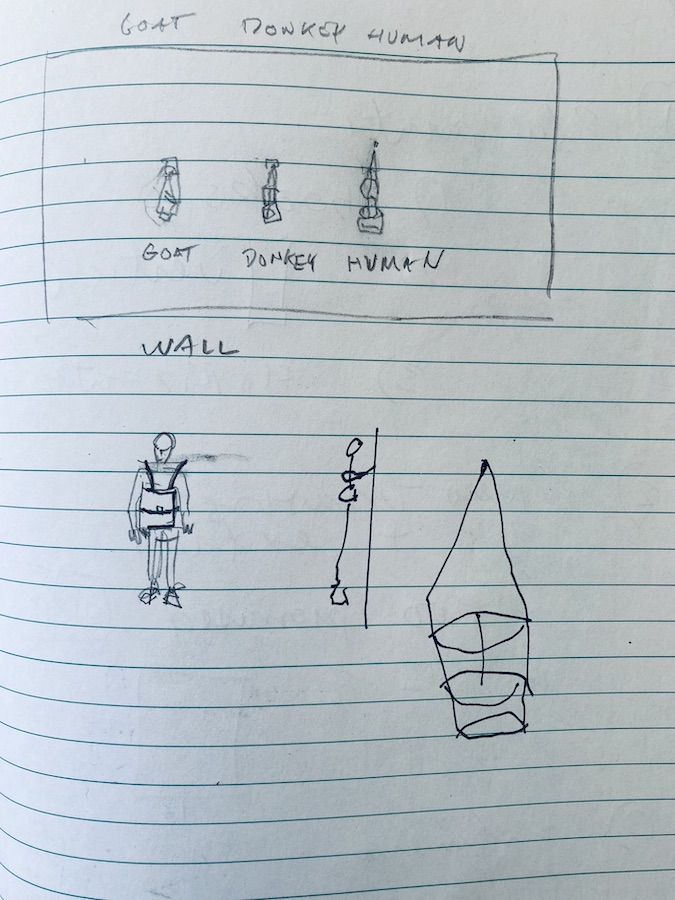 GOAT DONKEY HUMAN
GOAT DONKEY HUMAN
WALL